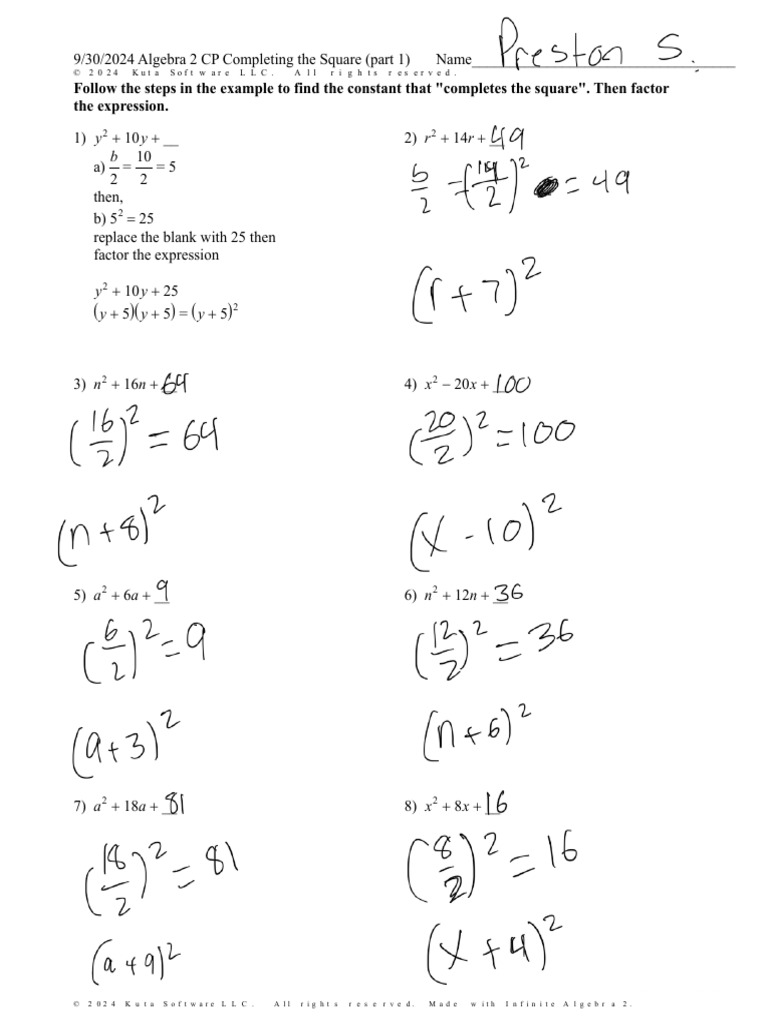 9/30/2024 Algebra 2 CP Completing the Square (part 1) Name Preston S.
© 2024 Kuta Software LLC. All rights reserved.
Follow the steps in the example to find the constant that "completes the square". Then factor
the expression.
1) y² + 10y + __
a) b/2 = 10/2 = 5
then,
b) 5² = 25
replace the blank with 25 then
factor the expression
y² + 10y + 25
(y + 5)(y + 5) = (y + 5)²
2) r² + 14r + 49
b/2 = (14/2)² = 49
(r + 7)²
3) n² + 16n + 64
(16/2)² = 64
(n + 8)²
4) x² − 20x + 100
(20/2)² = 100
(x - 10)²
5) a² + 6a + 9
(6/2)² = 9
(a + 3)²
6) n² + 12n + 36
(12/2)² = 36
(n + 6)²
7) a² + 18a + 81
(18/2)² = 81
(a + 9)²
8) x² + 8x + 16
(8/2)² = 16
(x + 4)²
© 2024 Kuta Software LLC. All rights reserved. Made with Infinite Algebra 2.